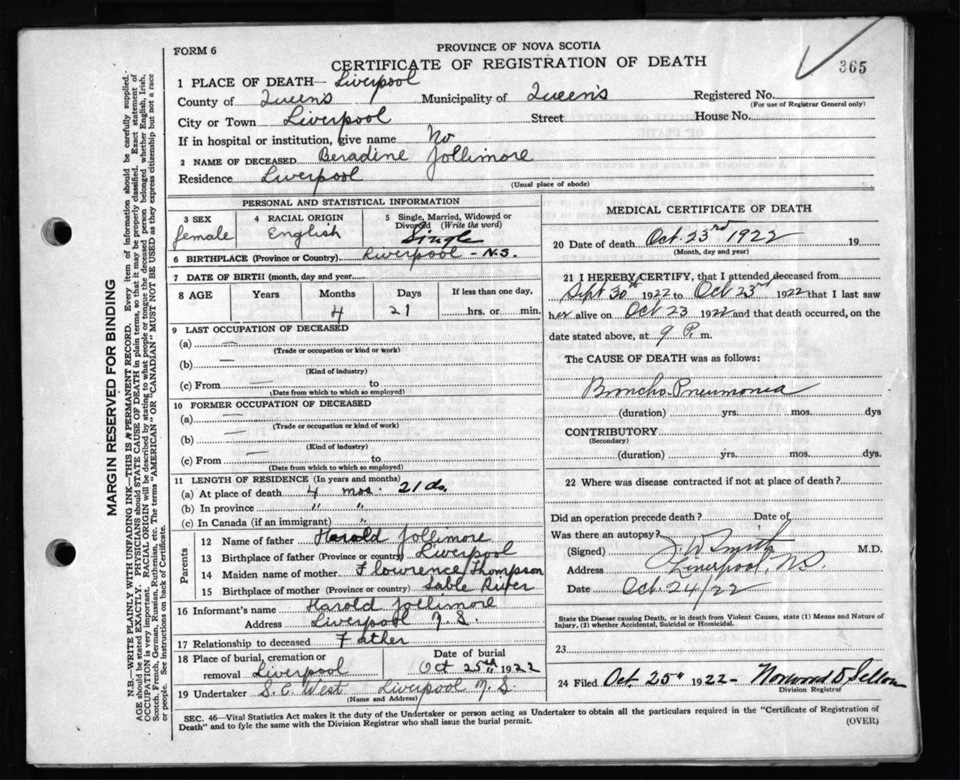 FORM 6
PROVINCE OF NOVA SCOTIA
CERTIFICATE OF REGISTRATION OF DEATH
365
1 PLACE OF DEATH— Liverpool
County of Queen's Municipality of Queen's Registered No.
(For use of Registrar General only)
City or Town Liverpool Street House No.
If in hospital or institution, give name No
2 NAME OF DECEASED Beradine Jollimore
Residence Liverpool
(Usual place of abode)
PERSONAL AND STATISTICAL INFORMATION
3 SEX female
4 RACIAL ORIGIN English
5 Single, Married, Widowed or Divorced (Write the word) Single
6 BIRTHPLACE (Province or Country) Liverpool - N.S.
7 DATE OF BIRTH (month, day and year)
8 AGE Years Months Days If less than one day,
4 21 hrs. or min.
9 LAST OCCUPATION OF DECEASED
(a) —
(Trade or occupation or kind of work)
(b) —
(Kind of industry)
(c) From — to
(Date from which to which so employed)
10 FORMER OCCUPATION OF DECEASED
(a) —
(Trade or occupation or kind of work)
(b) —
(Kind of industry)
(c) From — to
(Date from which to which so employed)
11 LENGTH OF RESIDENCE (In years and months)
(a) At place of death 4 mos. 21 ds.
(b) In province " "
(c) In Canada (if an immigrant) "
Parents
12 Name of father Harold Jollimore
13 Birthplace of father (Province or country) Liverpool
14 Maiden name of mother Flowrence Thompson
15 Birthplace of mother (Province or country) Sable River
16 Informant's name Harold Jollimore
Address Liverpool N.S.
17 Relationship to deceased Father
18 Place of burial, cremation or removal Liverpool Date of burial Oct 25th 1922
19 Undertaker S.C. West Liverpool N.S
(Name and Address)
MEDICAL CERTIFICATE OF DEATH
20 Date of death Oct. 23rd 1922 19
(Month, day and year)
21 I HEREBY CERTIFY, that I attended deceased from
Sept 30th 1922 to Oct 23rd 1922 that I last saw
her alive on Oct 23 1922 and that death occurred, on the
date stated above, at 9 P. m.
The CAUSE OF DEATH was as follows:
Broncho. Pneumonia
(duration) yrs. mos. dys
CONTRIBUTORY
(Secondary)
(duration) yrs. mos. dys.
22 Where was disease contracted if not at place of death?
Did an operation precede death? Date of
Was there an autopsy?
(Signed) J. W Smith M.D.
Address Liverpool, N.S
Date Oct. 24/22
State the Disease causing Death, or in death from Violent Causes, state (1) Means and Nature of Injury, (2) whether Accidental, Suicidal or Homicidal.
23
24 Filed Oct. 25" 1922- Norwood
Division Registrar
SEC. 46—Vital Statistics Act makes it the duty of the Undertaker or person acting as Undertaker to obtain all the particulars required in the "Certificate of Registration of
Death" and to fyle the same with the Division Registrar who shall issue the burial permit.
(OVER)
MARGIN RESERVED FOR BINDING
N.B.—WRITE PLAINLY WITH UNFADING INK—THIS IS A PERMANENT RECORD. Every item of information should be carefully supplied.
AGE should be stated EXACTLY. PHYSICIANS should STATE CAUSE OF DEATH in plain terms, so that it may be properly classified. Exact statement of
OCCUPATION is very important. RACIAL ORIGIN will be described by stating to what people or tongue the deceased person belonged whether English, Irish,
Scotch, French, German, Russian, Ruthenian, etc. The terms "AMERICAN" OR "CANADIAN" MUST NOT BE USED as they express citizenship but not a race
or people. See instructions on back of Certificate.